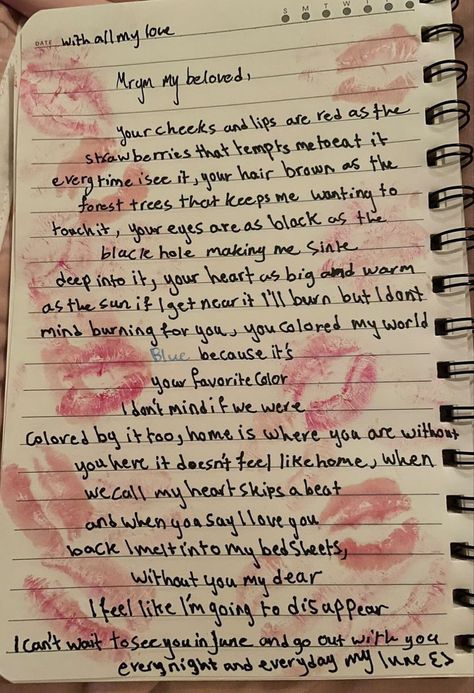 S M T W T F S
DATE with all my love
Mrym my beloved,
Your cheeks and lips are red as the
strawberries that tempts me to eat it
everytime i see it, your hair brown as the
forest trees that keeps me wanting to
touch it, your eyes are as black as the
black hole making me sink
deep into it, your heart as big and warm
as the sun if I get near it I'll burn but I don't
mind burning for you, you colored my world
Blue because it's
your favorite color
I don't mind if we were
colored by it too, home is where you are without
you here it doesn't feel like home, when
we call my heart skips a beat
and when you say I love you
back I melt into my bedsheets,
without you my dear
I feel like I'm going to disappear
I can't wait to see you in June and go out with you
every night and everyday my lune <3